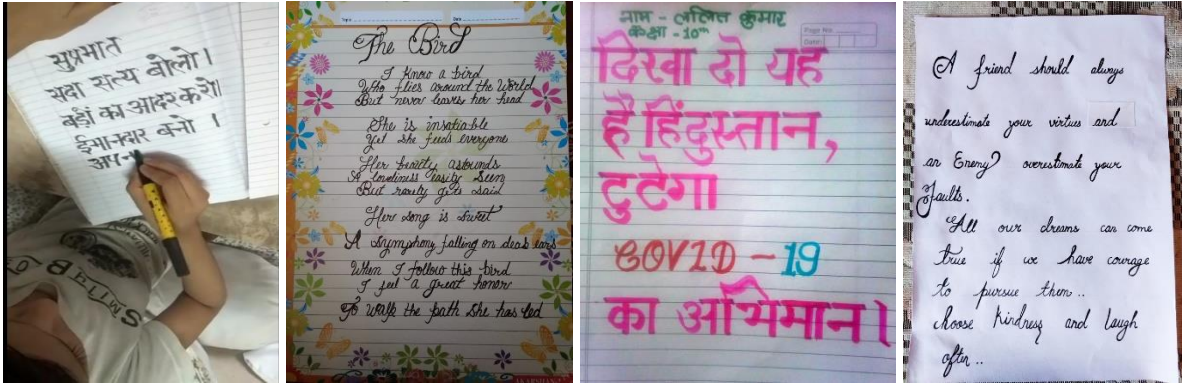 सुप्रभात
सदा सत्य बोलो ।
बड़ों का आदर करो।
ईमानदार बनो ।
अप
The Bird
I know a bird
Who flies around the World
But never leaves her head
She is insatiable
Yet she feeds everyone
Her beauty astounds
A loveliness easily Seen
But rarely gets said
Her song is sweet
A symphony falling on deas ears
When I follow this bird
I feel a great honor
To Walk the path She has led
नाम - ललित कुमार
कक्षा - 10th
Page No.
Date:
दिखा दो यह
है हिंदुस्तान,
टुटेगा
COVID - 19
का अभिमान।
A friend should always
underestimate your virtues and
an Enemy? overestimate your
Faults.
All our dreams can come
true if we have courage
to pursue them..
choose kindness and laugh
often..